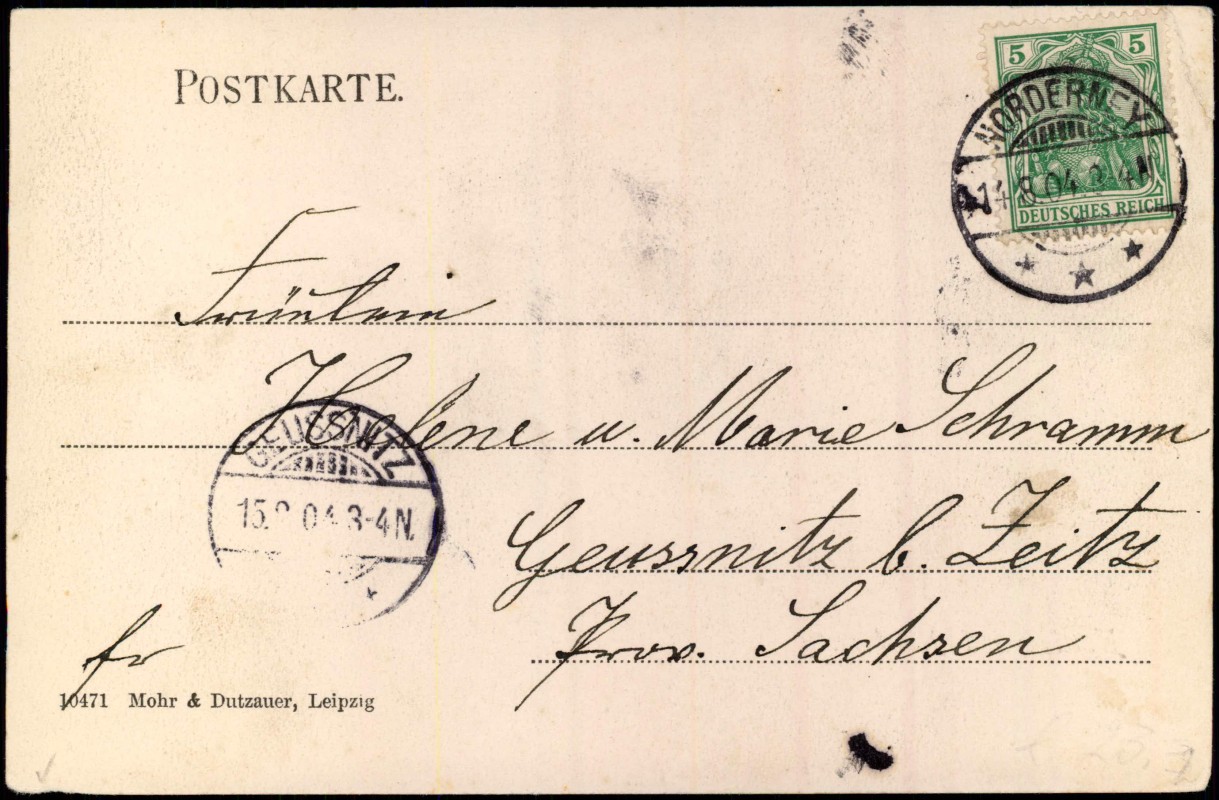 POSTKARTE.
5 5
NORDERNEY
14.8.04. 3-4N
DEUTSCHES REICH
Fräulein
Helene u. Marie Schramm
GEUSSNITZ
15.8.04.3-4N.
Geussnitz b. Zeitz
Prov. Sachsen
fr
10471 Mohr & Dutzauer, Leipzig